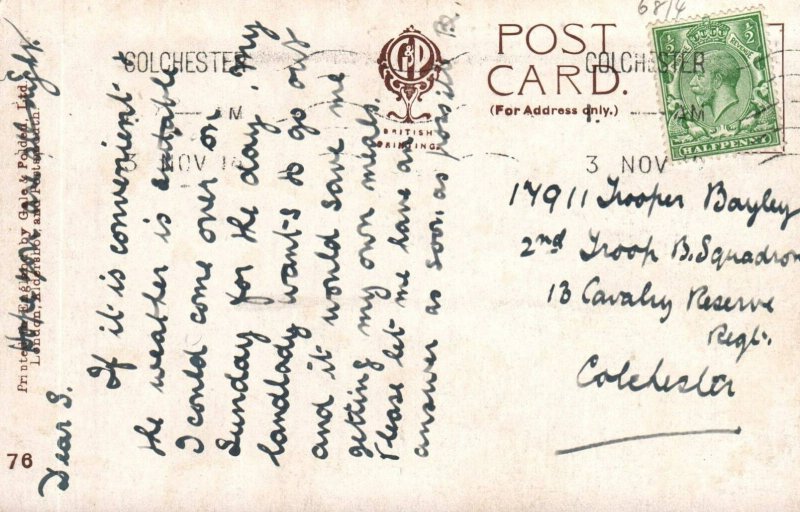 Dear S.
If it is convenient &
the weather is suitable
I could come over on
Sunday for the day. My
landlady wants to go out
and it would save me
getting my own meals.
Please let me have an
answer as soon as possible
B.
Hope you are all right.
76
Printed in England by Gale & Polden, Ltd.
London, Aldershot, and Portsmouth.
COLCHESTER
AM
3 NOV 14
G&P
BRITISH
PRINTING
POST
CARD.
(For Address only.)
COLCHESTER
AM
3 NOV
6814
½
½
REVENUE
HALFPENNY
17911 Trooper Bayley
2nd Troop B. Squadron
13 Cavalry Reserve
Regt.
Colchester